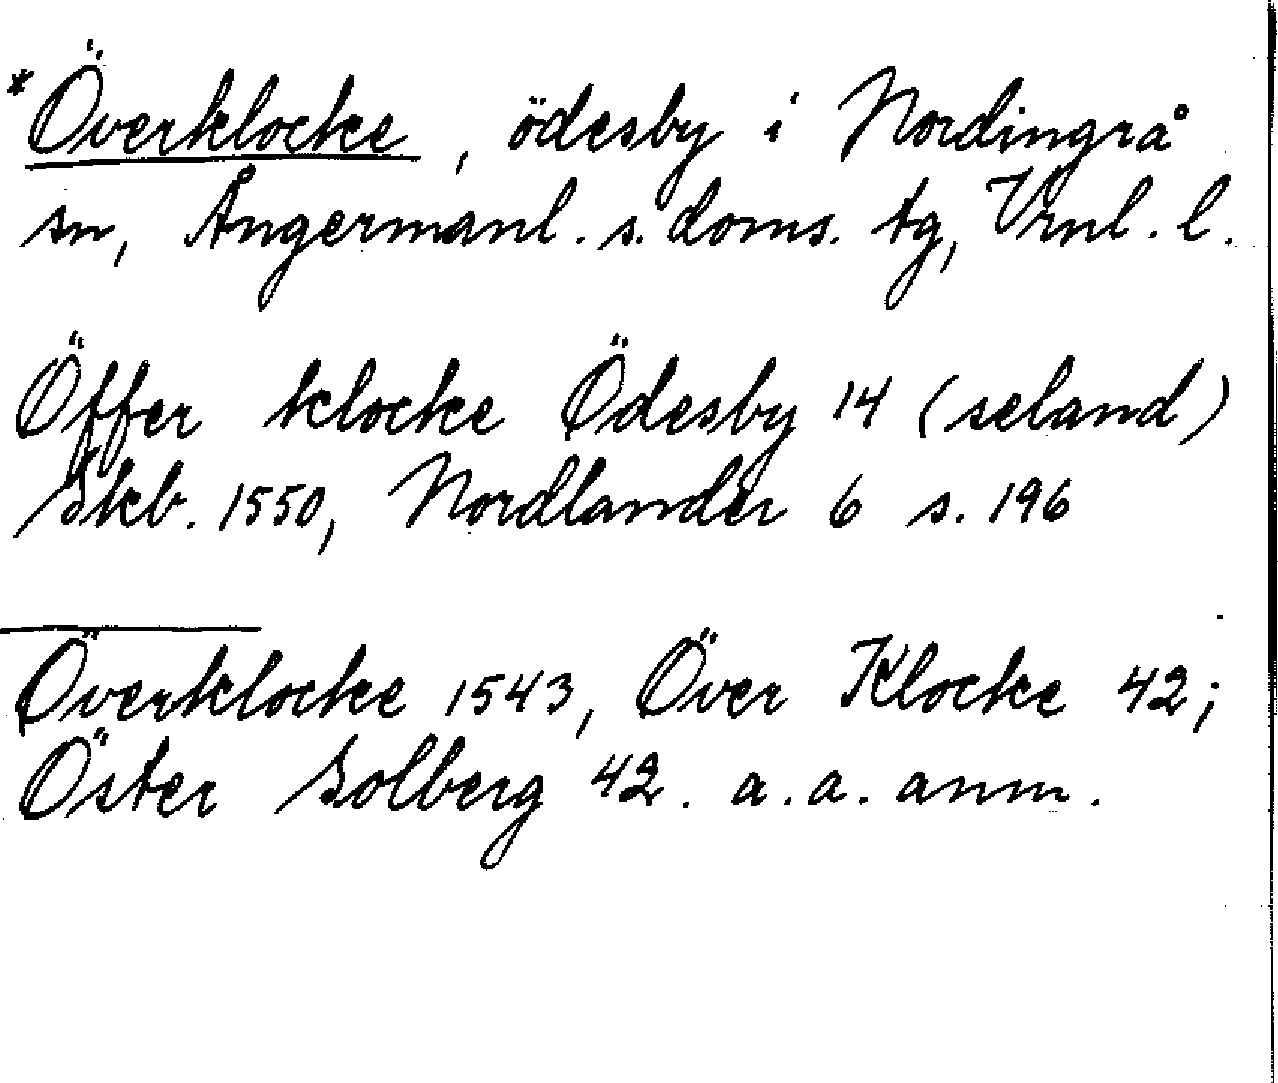 *Överklocke, ödesby i Nordingrå
sn, Ångermanl. s. doms. tg, Vrnl. l.
Öffer klocke Ödesby 14 (seland)
Skb. 1550, Nordlander 6 s. 196
Överklocke 1543, Över Klocke 42;
Öster Solberg 42. a.a. anm.